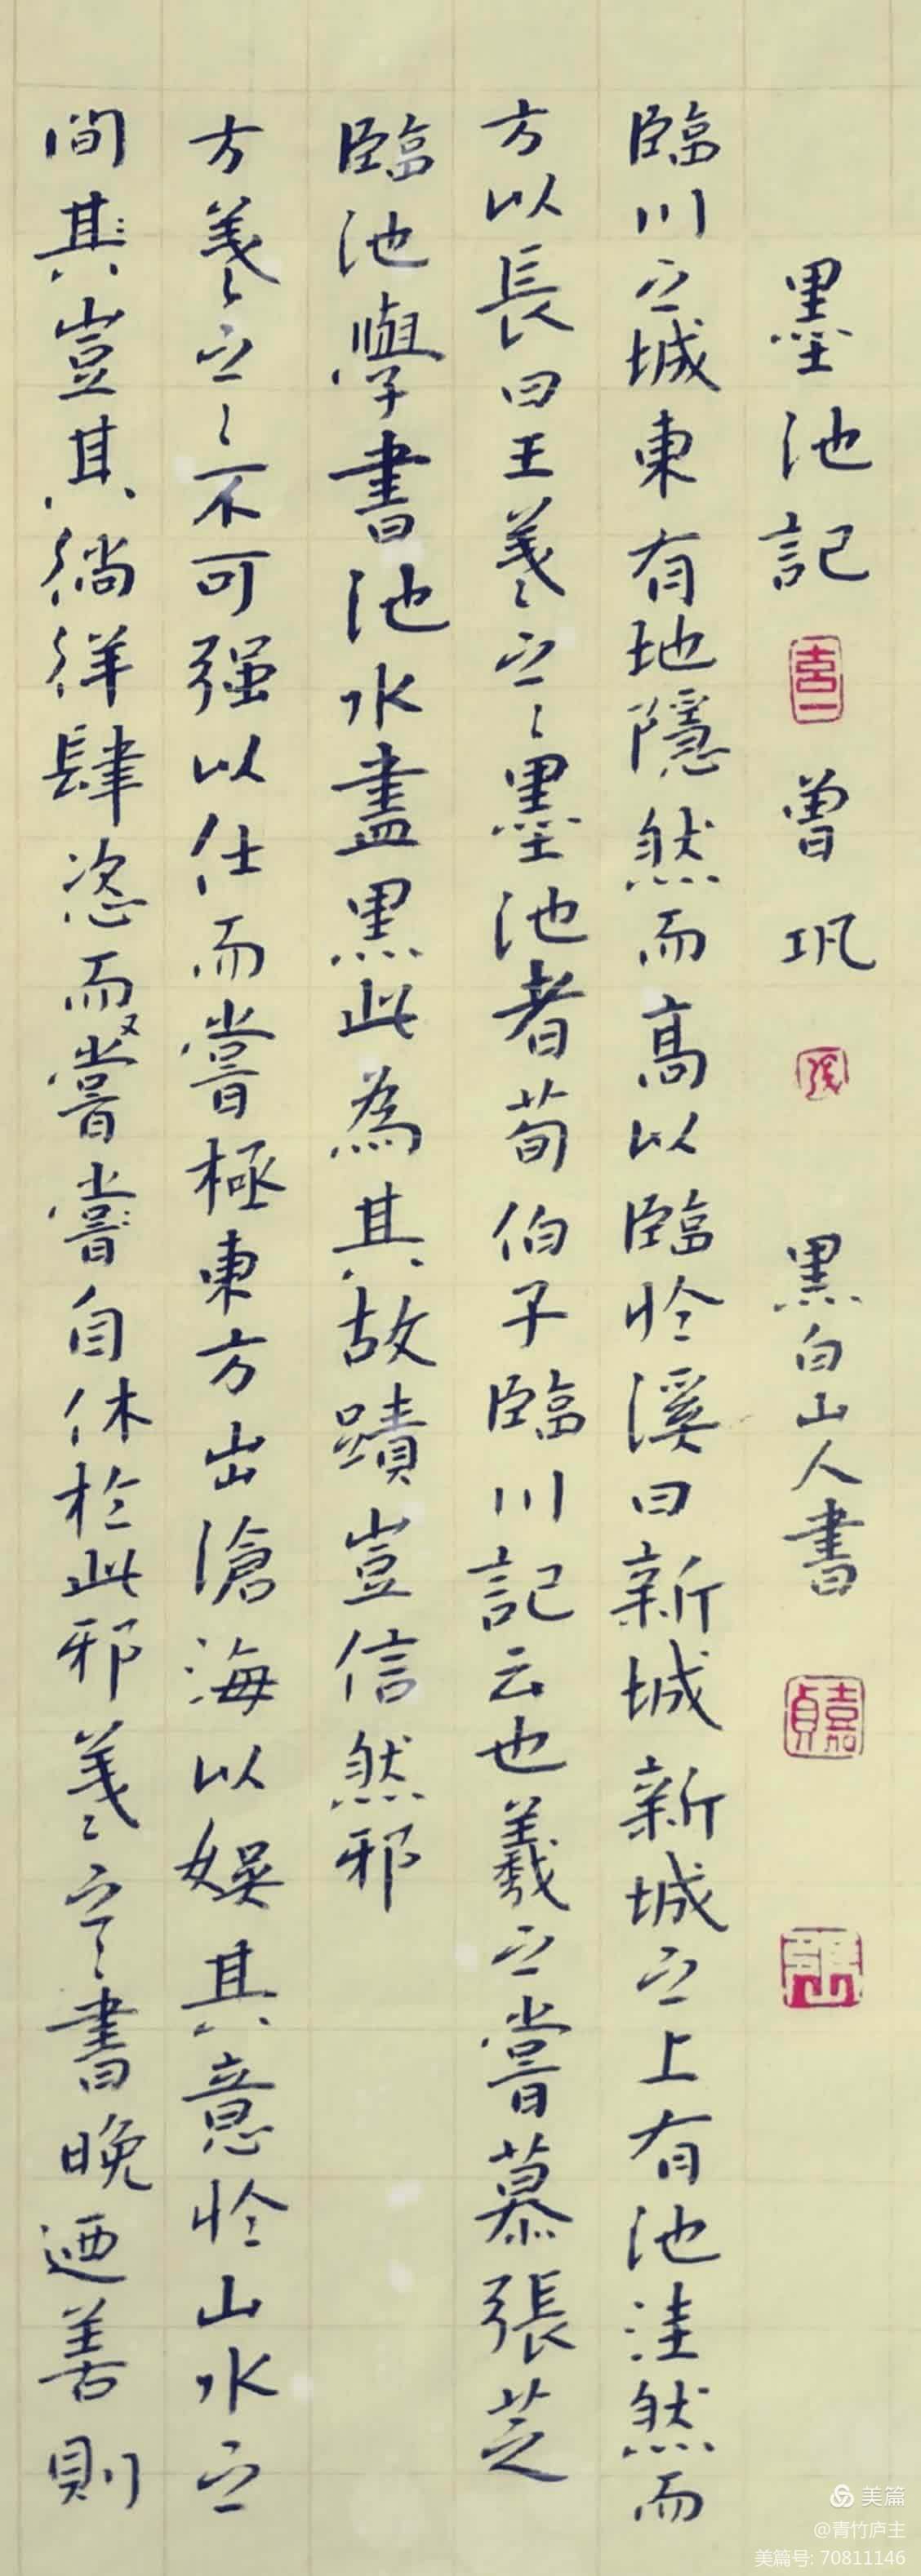 墨池記 曾巩 黑白山人書
臨川之城東有地隱然而高以臨於溪曰新城新城之上有池洼然而
方以長曰王羲之〻墨池者荀伯子臨川記云也羲之嘗慕張芝
臨池學書池水盡黑此為其故蹟豈信然邪
方羲之〻不可强以仕而嘗極東方出滄海以娛其意於山水之
間其豈其徜徉肆恣而又嘗嘗自休於此邪羲之〻書晚迺善則
美篇
@青竹庐主
美篇号: 70811146